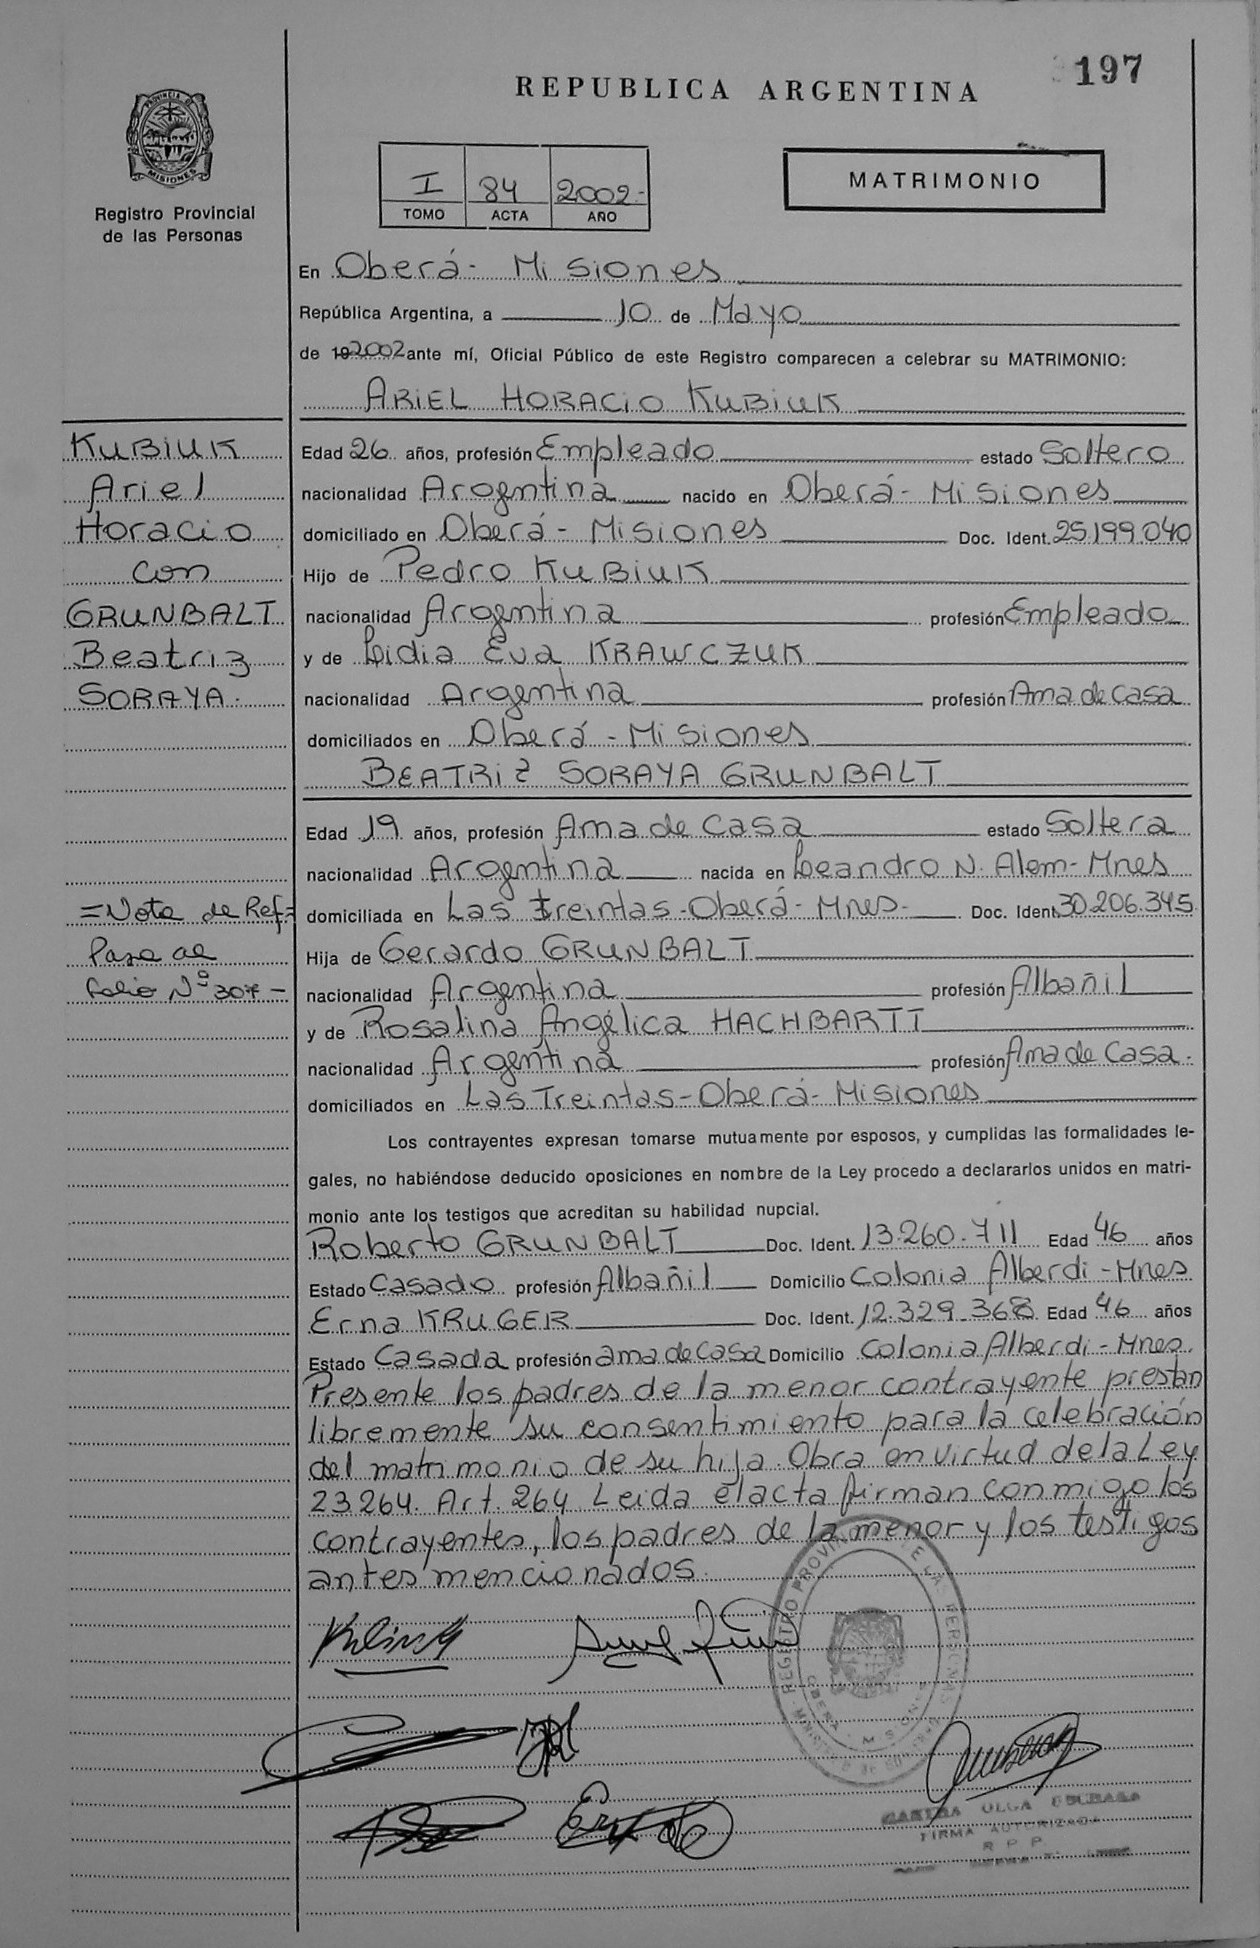 197
REPUBLICA ARGENTINA
PROVINCIA DE
MISIONES
Registro Provincial
de las Personas
I 84 2002.-
TOMO ACTA AÑO
MATRIMONIO
En Oberá - Misiones
República Argentina, a 10 de Mayo
de 192002 ante mí, Oficial Público de este Registro comparecen a celebrar su MATRIMONIO:
ARIEL HORACIO KUBIUK
KUBIUK
Ariel
Horacio
con
GRUNBALT
Beatriz
SORAYA.
Edad 26 años, profesión Empleado estado Soltero
nacionalidad Argentina nacido en Oberá - Misiones
domiciliado en Oberá - Misiones Doc. Ident. 25.199.040
Hijo de Pedro KUBIUK
nacionalidad Argentina profesión Empleado
y de Lidia Eva KRAWCZUK
nacionalidad Argentina profesión Ama de casa
domiciliados en Oberá - Misiones
BEATRIZ SORAYA GRUNBALT
Edad 19 años, profesión Ama de casa estado Soltera
nacionalidad Argentina nacida en Leandro N. Alem - Mnes
domiciliada en Las Treintas - Oberá - Mnes - Doc. Ident. 30.206.345
Hija de Gerardo GRUNBALT
nacionalidad Argentina profesión Albañil
y de Rosalina Angélica HACHBARTT
nacionalidad Argentina profesión Ama de Casa.
domiciliados en Las Treintas - Oberá - Misiones
=Nota de Ref=
Pasa al
folio Nº 307 -
Los contrayentes expresan tomarse mutuamente por esposos, y cumplidas las formalidades le-
gales, no habiéndose deducido oposiciones en nombre de la Ley procedo a declararlos unidos en matri-
monio ante los testigos que acreditan su habilidad nupcial.
Roberto GRUNBALT Doc. Ident. 13.260.711 Edad 46 años
Estado Casado profesión Albañil Domicilio Colonia Alberdi - Mnes
Erna KRUGER Doc. Ident. 12.329.368 Edad 46 años
Estado Casada profesión ama de casa Domicilio Colonia Alberdi - Mnes.
Presente los padres de la menor contrayente prestan
libremente su consentimiento para la celebración
del matrimonio de su hija. Obra en virtud de la Ley
23264. Art. 264 Leida el acta firman conmigo los
contrayentes, los padres de la menor y los testigos
antes mencionados.
REGISTRO PROVINCIAL DE LAS PERSONAS
OLGA
FIRMA AUTORIZADA
R P P